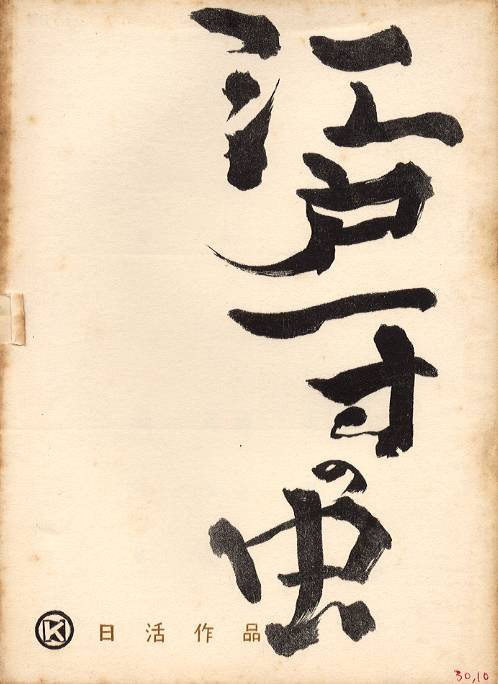 江戸一寸の虫
K 日活作品
30,10